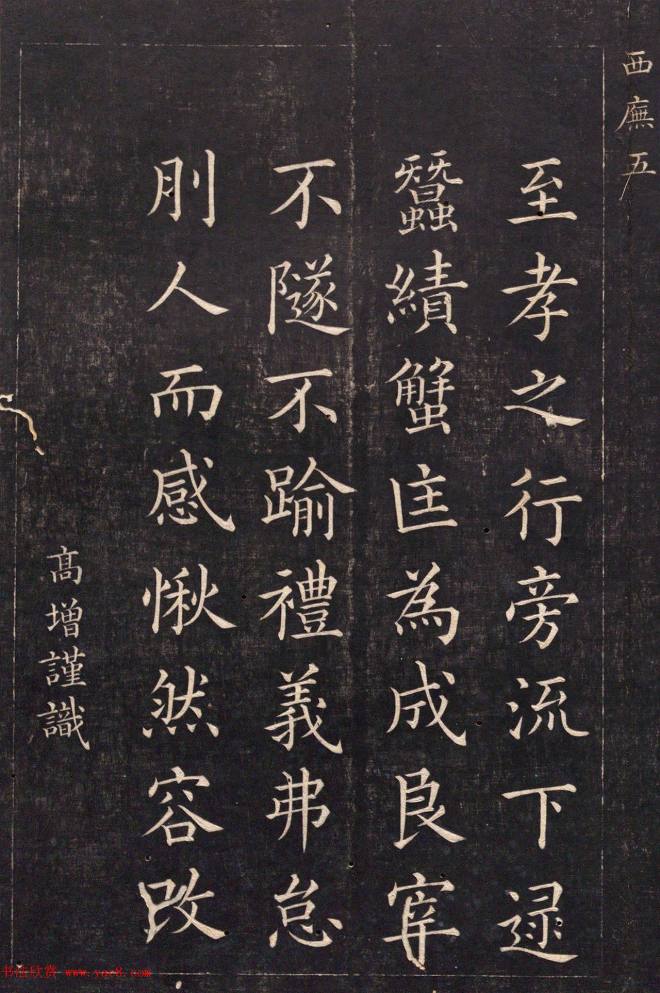 西廡五
至孝之行旁流下逯
蠶績蟹匡為成良宰
不隧不踰禮義弗怠
刖人而感愀然容改
高增謹識
书法欣赏 www.yac8.com